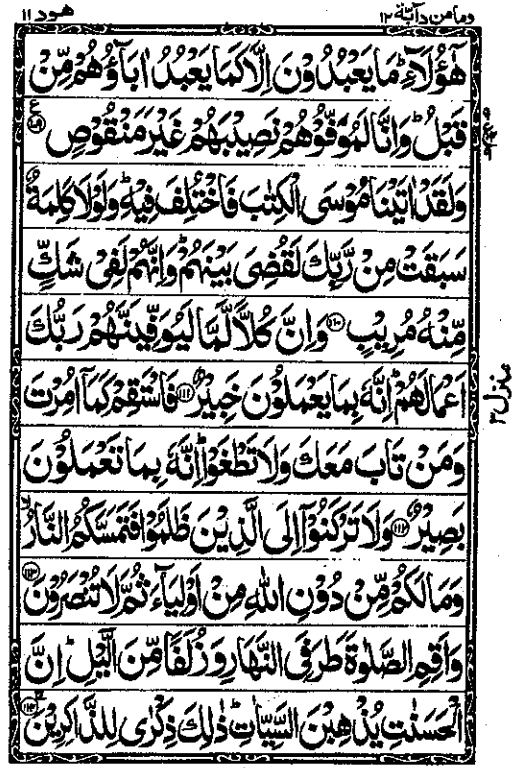 وما من دآبة ١٢
هود ١١
هٰٓؤُلَآءِ ؕ مَا يَعْبُدُوْنَ اِلَّا كَمَا يَعْبُدُ اٰبَآؤُهُمْ مِّنْ
قَبْلُ ؕ وَاِنَّا لَمُوَفُّوْهُمْ نَصِيْبَهُمْ غَيْرَ مَنْقُوْصٍ ﴿۱۰۹﴾
وَلَقَدْ اٰتَيْنَا مُوْسَى الْكِتٰبَ فَاخْتُلِفَ فِيْهِ ؕ وَلَوْلَا كَلِمَةٌ
سَبَقَتْ مِنْ رَّبِّكَ لَقُضِيَ بَيْنَهُمْ ؕ وَاِنَّهُمْ لَفِيْ شَكٍّ
مِّنْهُ مُرِيْبٍ ﴿۱۱۰﴾ وَاِنَّ كُلًّا لَّمَّا لَيُوَفِّيَنَّهُمْ رَبُّكَ
اَعْمَالَهُمْ ؕ اِنَّهٗ بِمَا يَعْمَلُوْنَ خَبِيْرٌ ﴿۱۱۱﴾ فَاسْتَقِمْ كَمَآ اُمِرْتَ
وَمَنْ تَابَ مَعَكَ وَلَا تَطْغَوْا ؕ اِنَّهٗ بِمَا تَعْمَلُوْنَ
بَصِيْرٌ ﴿۱۱۲﴾ وَلَا تَرْكَنُوْٓا اِلَى الَّذِيْنَ ظَلَمُوْا فَتَمَسَّكُمُ النَّارُ ۙ
وَمَا لَكُمْ مِّنْ دُوْنِ اللّٰهِ مِنْ اَوْلِيَآءَ ثُمَّ لَا تُنْصَرُوْنَ ﴿۱۱۳﴾
وَاَقِمِ الصَّلٰوةَ طَرَفَيِ النَّهَارِ وَزُلَفًا مِّنَ الَّيْلِ ؕ اِنَّ
الْحَسَنٰتِ يُذْهِبْنَ السَّيِّاٰتِ ؕ ذٰلِكَ ذِكْرٰى لِلذّٰكِرِيْنَ ﴿۱۱۴﴾
منزل ٣